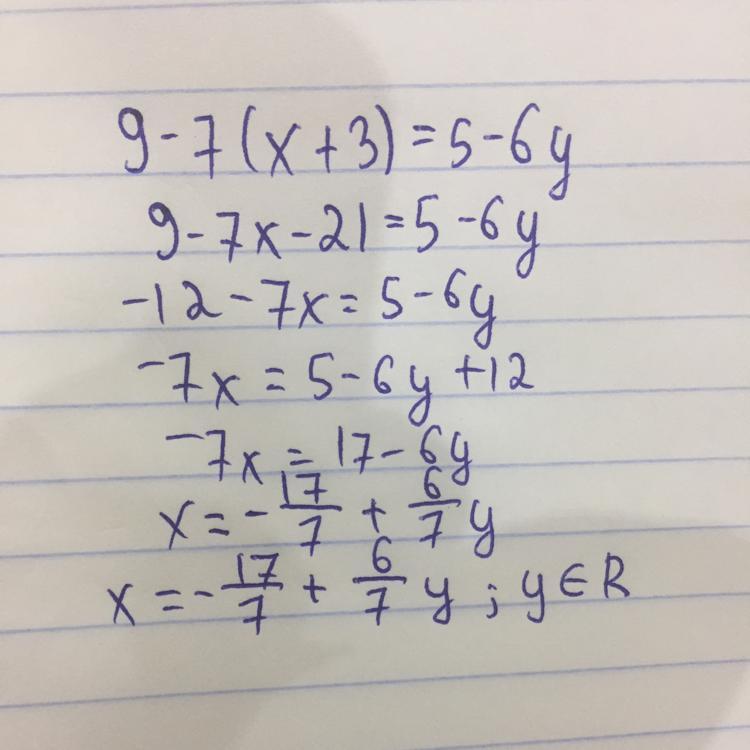 9-7(x+3)=5-6y
9-7x-21=5-6y
-12-7x=5-6y
-7x=5-6y+12
-7x=17-6y
x=-17/7+6/7y
x=-17/7+6/7y;y∈R